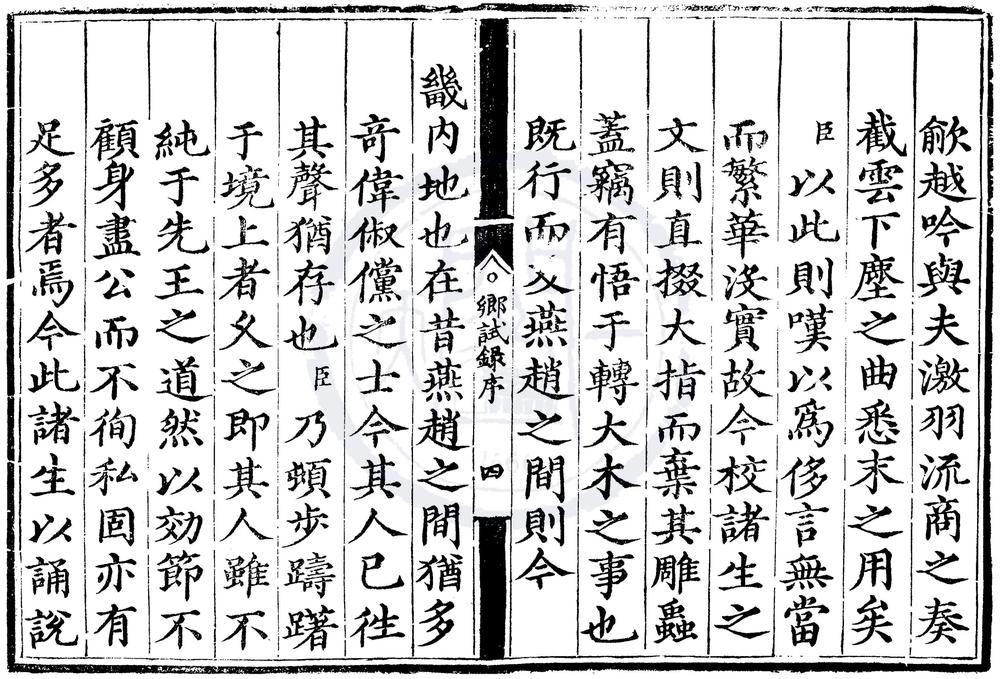 歈越吟與夫激羽流商之奏
截雲下塵之曲悉末之用矣
臣以此則嘆以爲侈言無當
而繁華沒實故今校諸生之
文則直掇大指而棄其雕蟲
蓋竊有悟于轉大木之事也
既行而又燕趙之間則今
鄉試録序 四
畿內地也在昔燕趙之間猶多
竒偉俶儻之士今其人已徃
其聲猶存也臣乃頓步躊躇
于境上者久之即其人雖不
純于先王之道然以効節不
顧身盡公而不徇私固亦有
足多者焉今此諸生以誦說